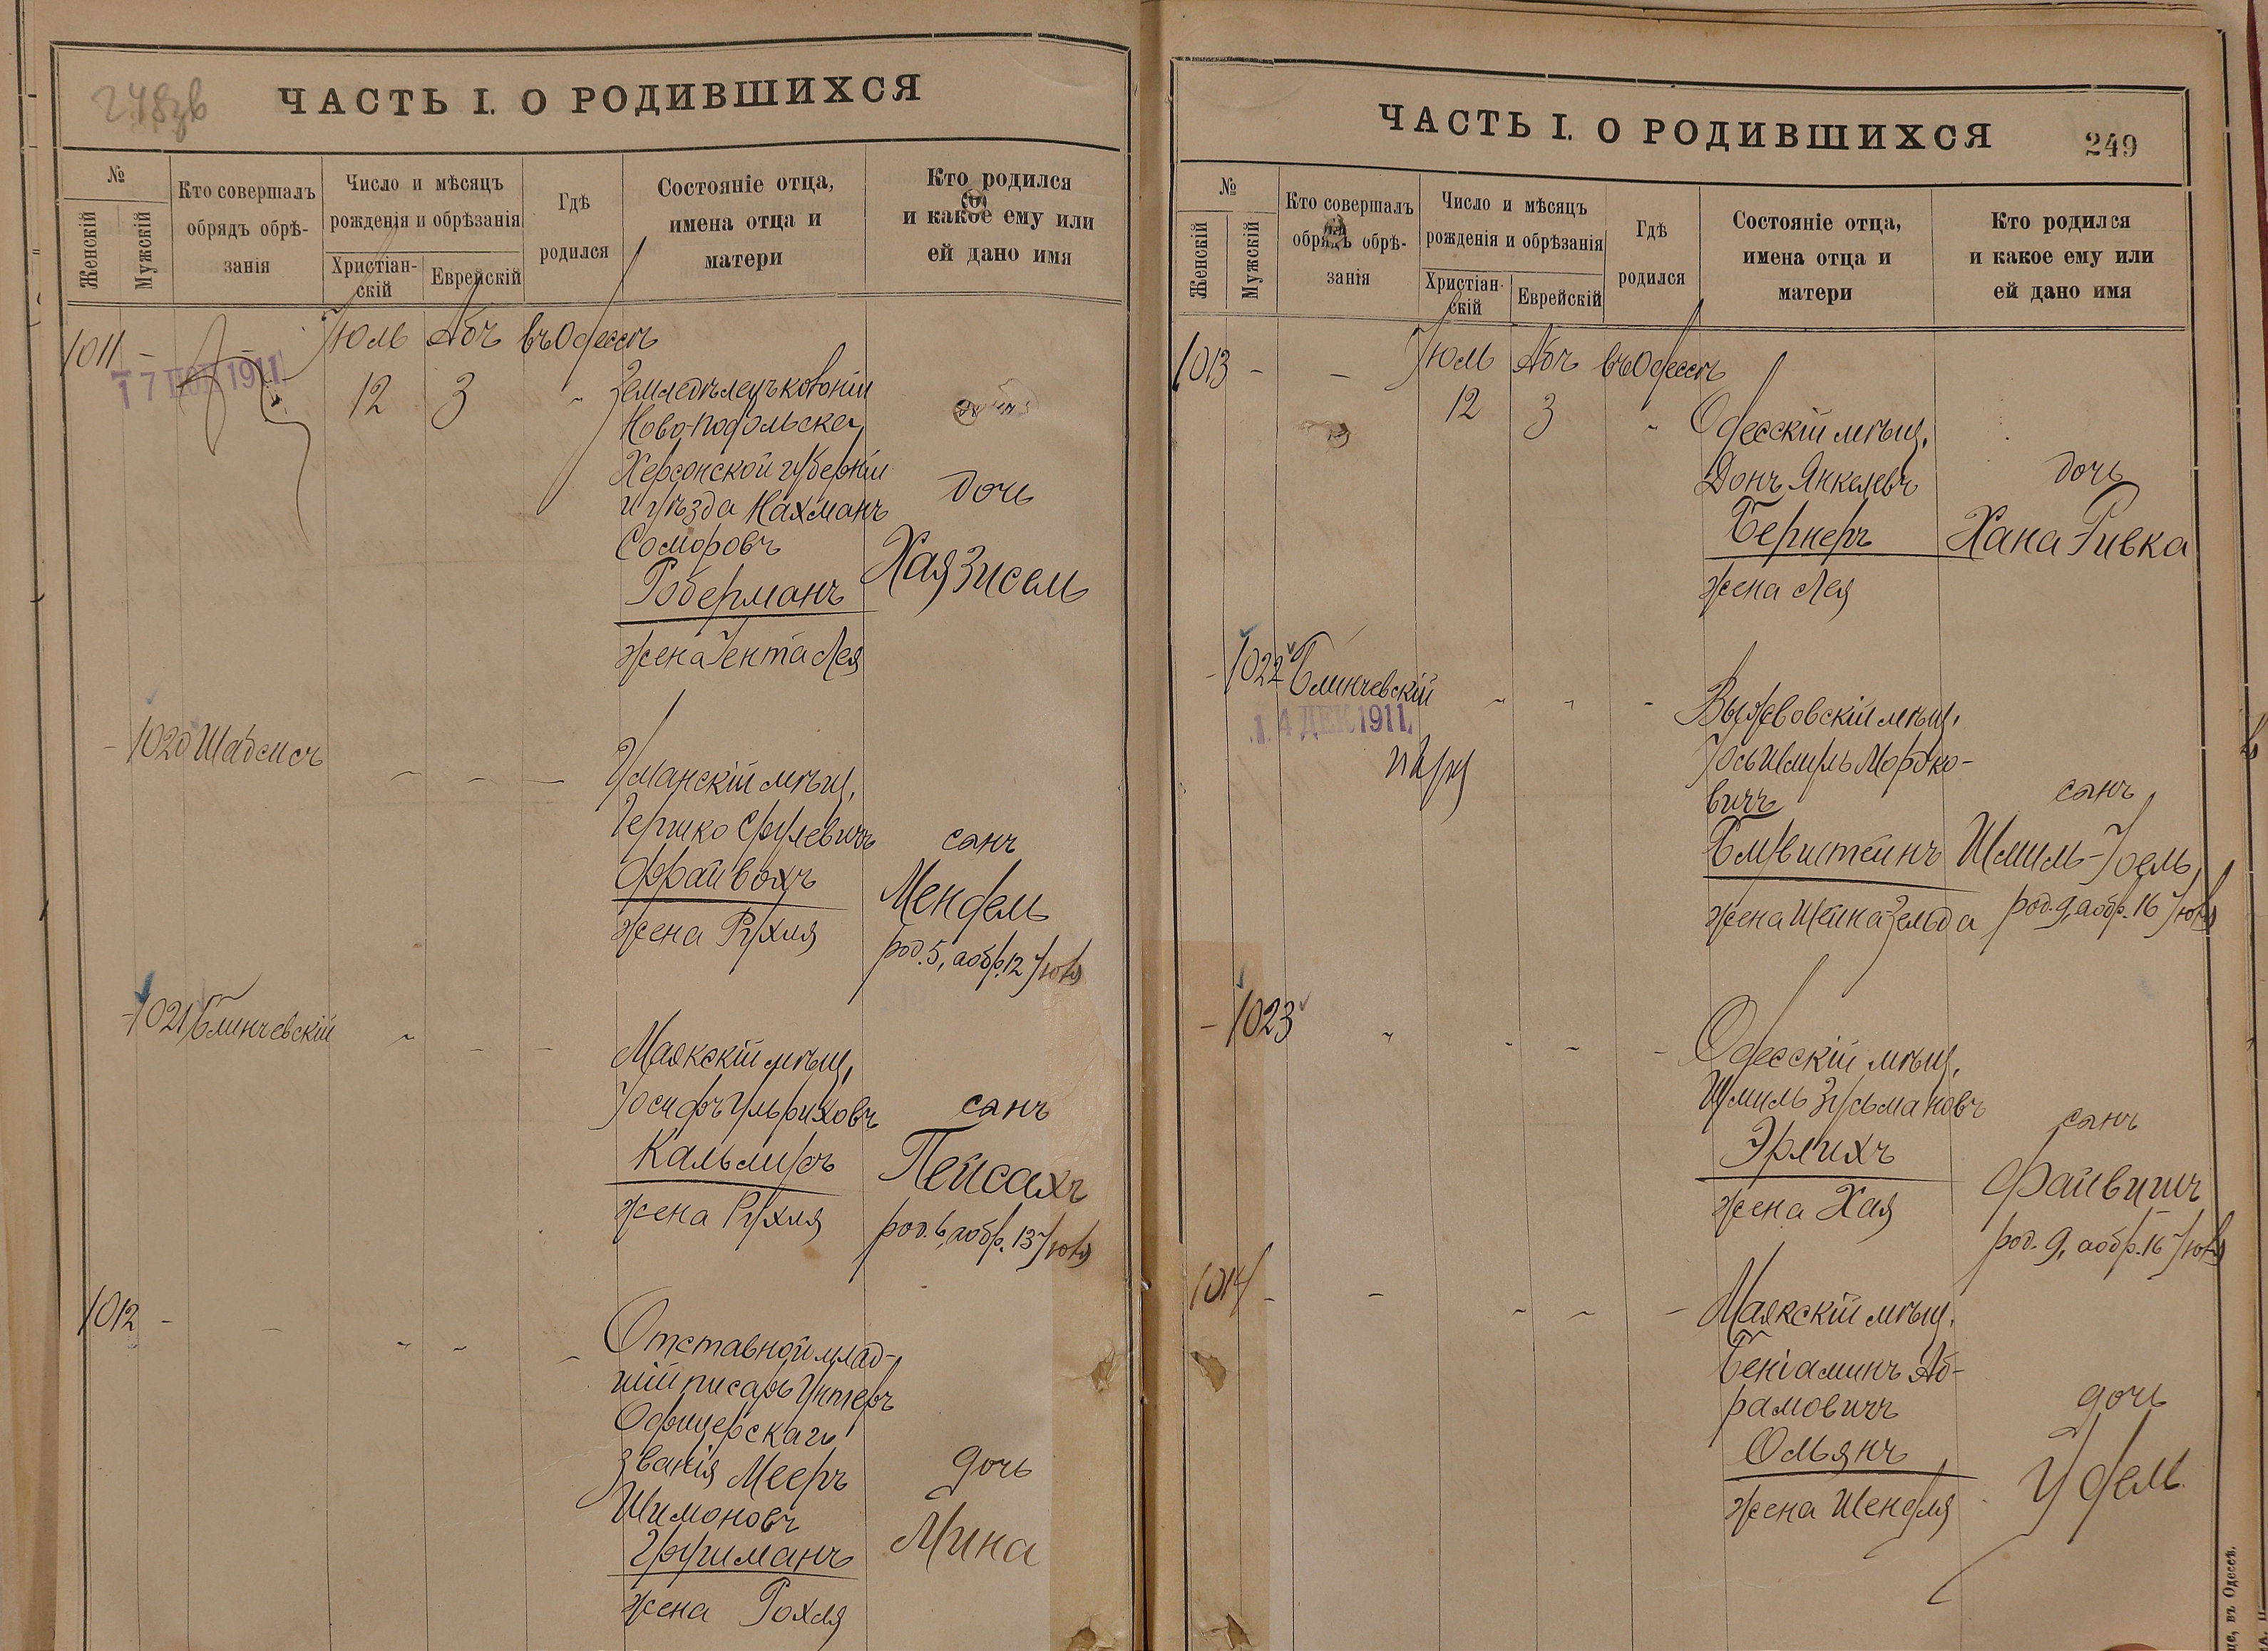 248зв
ЧАСТЬ I. О РОДИВШИХСЯ
№
Женскій
Мужскій
Кто совершалъ
обрядъ обрѣ-
занія
Число и мѣсяцъ
рожденія и обрѣзанія
Христіан-
скій
Еврейскій
Гдѣ
родился
Состояніе отца,
имена отца и
матери
Кто родился
и какое ему или
ей дано имя
1011 - - Іюль Абъ въ Одессѣ
17 НОЯ 1911
12 3 " Земледѣлецъ колоніи
Ново-Подольска
Херсонской губерніи
и уѣзда Нахманъ дочь
Соморовъ
Роберманъ Хая Зисель
жена Гента Лея
- 1020 Шабсисъ - - - Уманскій мѣщ.
Гершко Срулевичъ сынъ
Фрайвахъ Мендель
жена Рухля род. 5, а обр. 12 Іюля
- 1021 Блинчевскій " - - Маякскій мѣщ.
Іосифъ Ульриховъ сынъ
Кальмусъ Пейсахъ
жена Рухля род. 6, а обр. 13 Іюля
1012 - - " - - Отставной млад-
шій писарь Унтеръ
Офицерскаго
званія Мееръ дочь
Шимоновъ
Груманъ Мина
жена Рохля
ЧАСТЬ I. О РОДИВШИХСЯ
249
№
Женскій
Мужскій
Кто совершалъ
обрядъ обрѣ-
занія
Число и мѣсяцъ
рожденія и обрѣзанія
Христіан-
скій
Еврейскій
Гдѣ
родился
Состояніе отца,
имена отца и
матери
Кто родился
и какое ему или
ей дано имя
1013 - - Іюль Абъ въ Одессѣ
12 3 " Одесскій мѣщ.
Донъ Янкелевъ дочь
Бернеръ Хана Ривка
жена Лея
- 1022 Блинчевскій " " - Выжвовскій мѣщ.
14 ДЕК 1911
Іось Шмуль Мордко-
вичъ сынъ
Блувштейнъ Шмиль-Іоель
жена Шейна Зельда род. 9, а обр. 16 Іюля
- 1023 " - - - Одесскій мѣщ.
Шмиль Зусьмановъ сынъ
Эрлихъ Файвишъ
жена Хая род. 9, а обр. 16 Іюля
1014 - - - - - Маякскій мѣщ.
Беніаминъ Аб-
рамовичъ дочь
Ольянъ Удель
жена Шендля
въ Одессѣ.